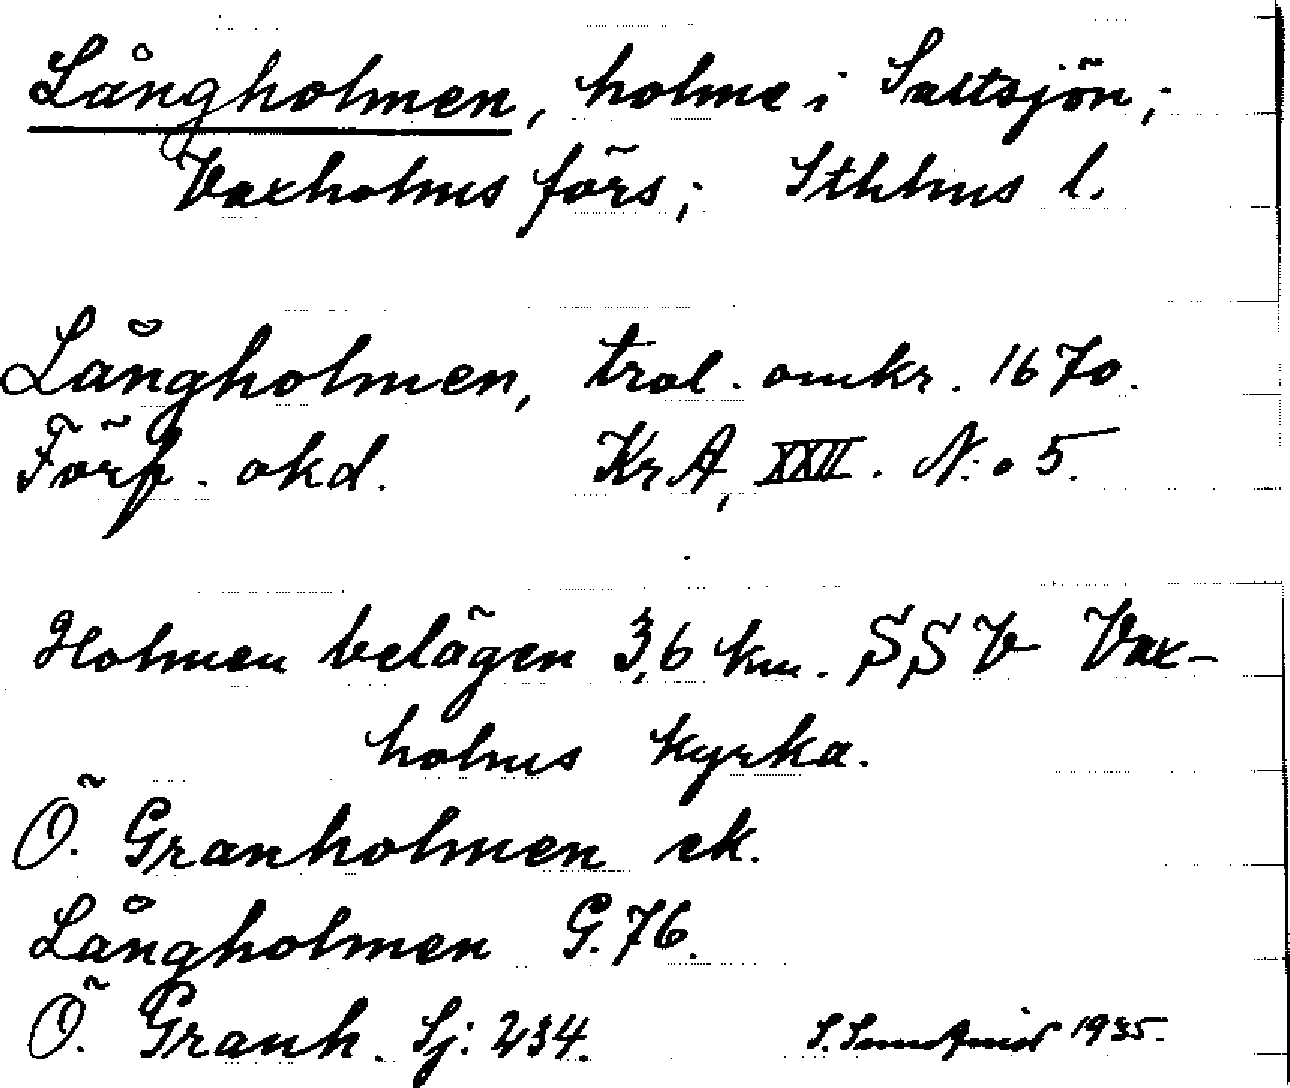 Långholmen, holme i Saltsjön;
Vaxholms förs; Sthlms l.
Långholmen, trol. omkr. 1670.
Förf. okd. KrA, XXII. N:o 5.
Holmen belägen 3,6 km. SSV Vax-
holms kyrka.
Ö. Granholmen ek.
Långholmen G. 76.
Ö. Granh. Sj: 234. S. 1935.